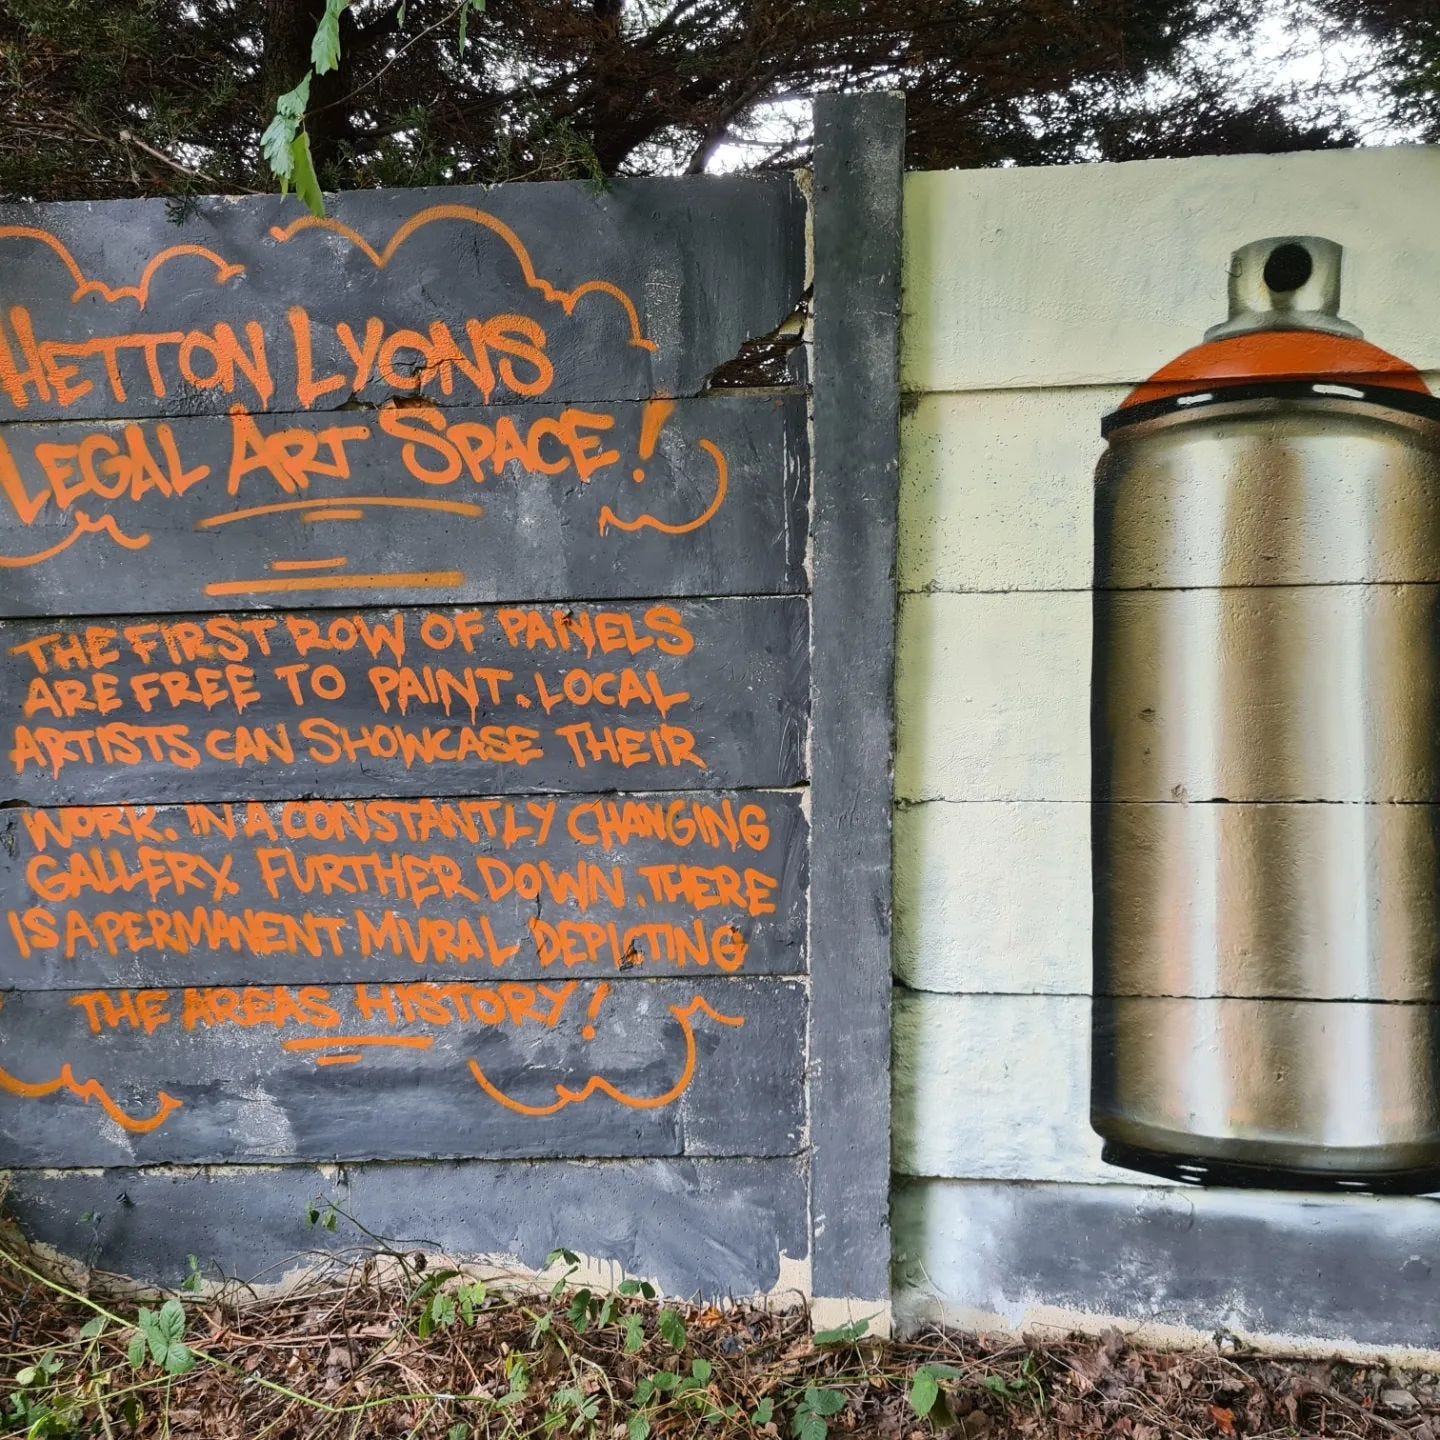 HETTON LYONS
LEGAL ART SPACE!
THE FIRST ROW OF PANELS
ARE FREE TO PAINT. LOCAL
ARTISTS CAN SHOWCASE THEIR
WORK. IN A CONSTANTLY CHANGING
GALLERY. FURTHER DOWN. THERE
IS A PERMANENT MURAL DEPICTING
THE AREAS HISTORY!